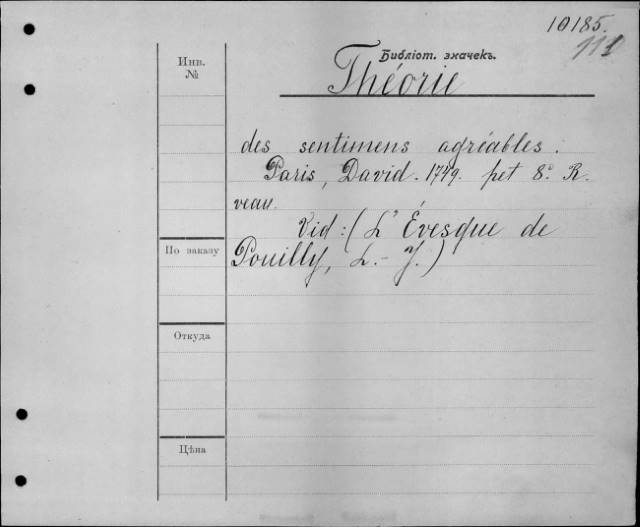 10185.
111
Инв.
№
Библіот. значекъ.
Théorie
des sentimens agréables.
Paris, David. 1749. pet 8.º R.
veau.
Vid: (L'Évesque de
По заказу
Pouilly, L.-J.)
Откуда
Цѣна